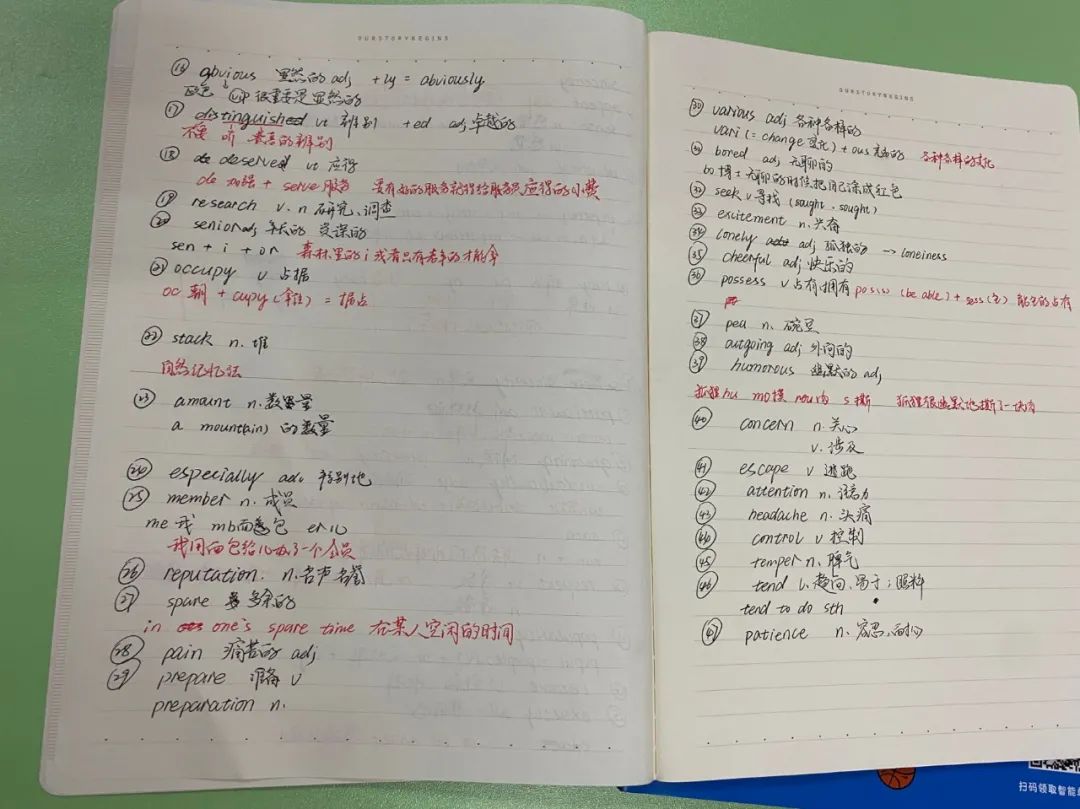 OURSTORYBEGINS
⑯ obvious 显然的 adj +ly = obviously
vip 很重要是显然的
⑰ distinguished vt 辨别 +ed adj 卓越的
的辨别
⑱ deserved vt 应得
de 加强 + serve 服务 要有好的服务就得给服务员应得的小费
⑲ research v. n 研究、调查
⑳ senior adj 年长的 资深的
sen + i + or 森林里的 i 或者只有老年的才能拿
㉑ occupy v 占据
oc 朝 + cupy (拿住) = 据点
㉒ stack n. 堆
自然记忆法
㉓ amount n. 数量
a mountain) 的数量
㉔ especially adv 特别地
㉕ member n. 成员
me 我 mb 面包 er 儿
我用面包给儿办了一个会员
㉖ reputation. n. 名声 名誉
㉗ spare 多余的
in one's spare time 在某人空闲的时间
㉘ pain 痛苦的 adj
㉙ prepare 准备 v
preparation n.
OURSTORYBEGINS
㉚ various adj 各种各样的
vari (= change 变化) + ous 充满的 各种各样的变化
㉛ bored adj 无聊的
bo 博士无聊的时候把自己涂成红色
㉜ seek v 寻找 (sought, sought)
㉝ excitement n. 兴奋
㉞ lonely adj 孤独的 → loneiness
㉟ cheerful adj 快乐的
㊱ possess v 占有,拥有 pos(s) (be able) + sess (坐) 能坐的占有
㊲ pea n. 豌豆
㊳ outgoing adj 外向的
㊴ humorous 幽默的 adj
狐狸 hu mo 摸 rou 肉 s 撕 狐狸很幽默地撕了一块肉
㊵ concern n. 关心
v. 涉及
㊶ escape v 逃跑
㊷ attention n. 注意力
㊸ headache n. 头痛
control v 控制
㊺ temper n. 脾气
㊻ tend v. 趋向、易于；照料
tend to do sth
㊼ patience n. 容忍、耐心
扫码领取智能